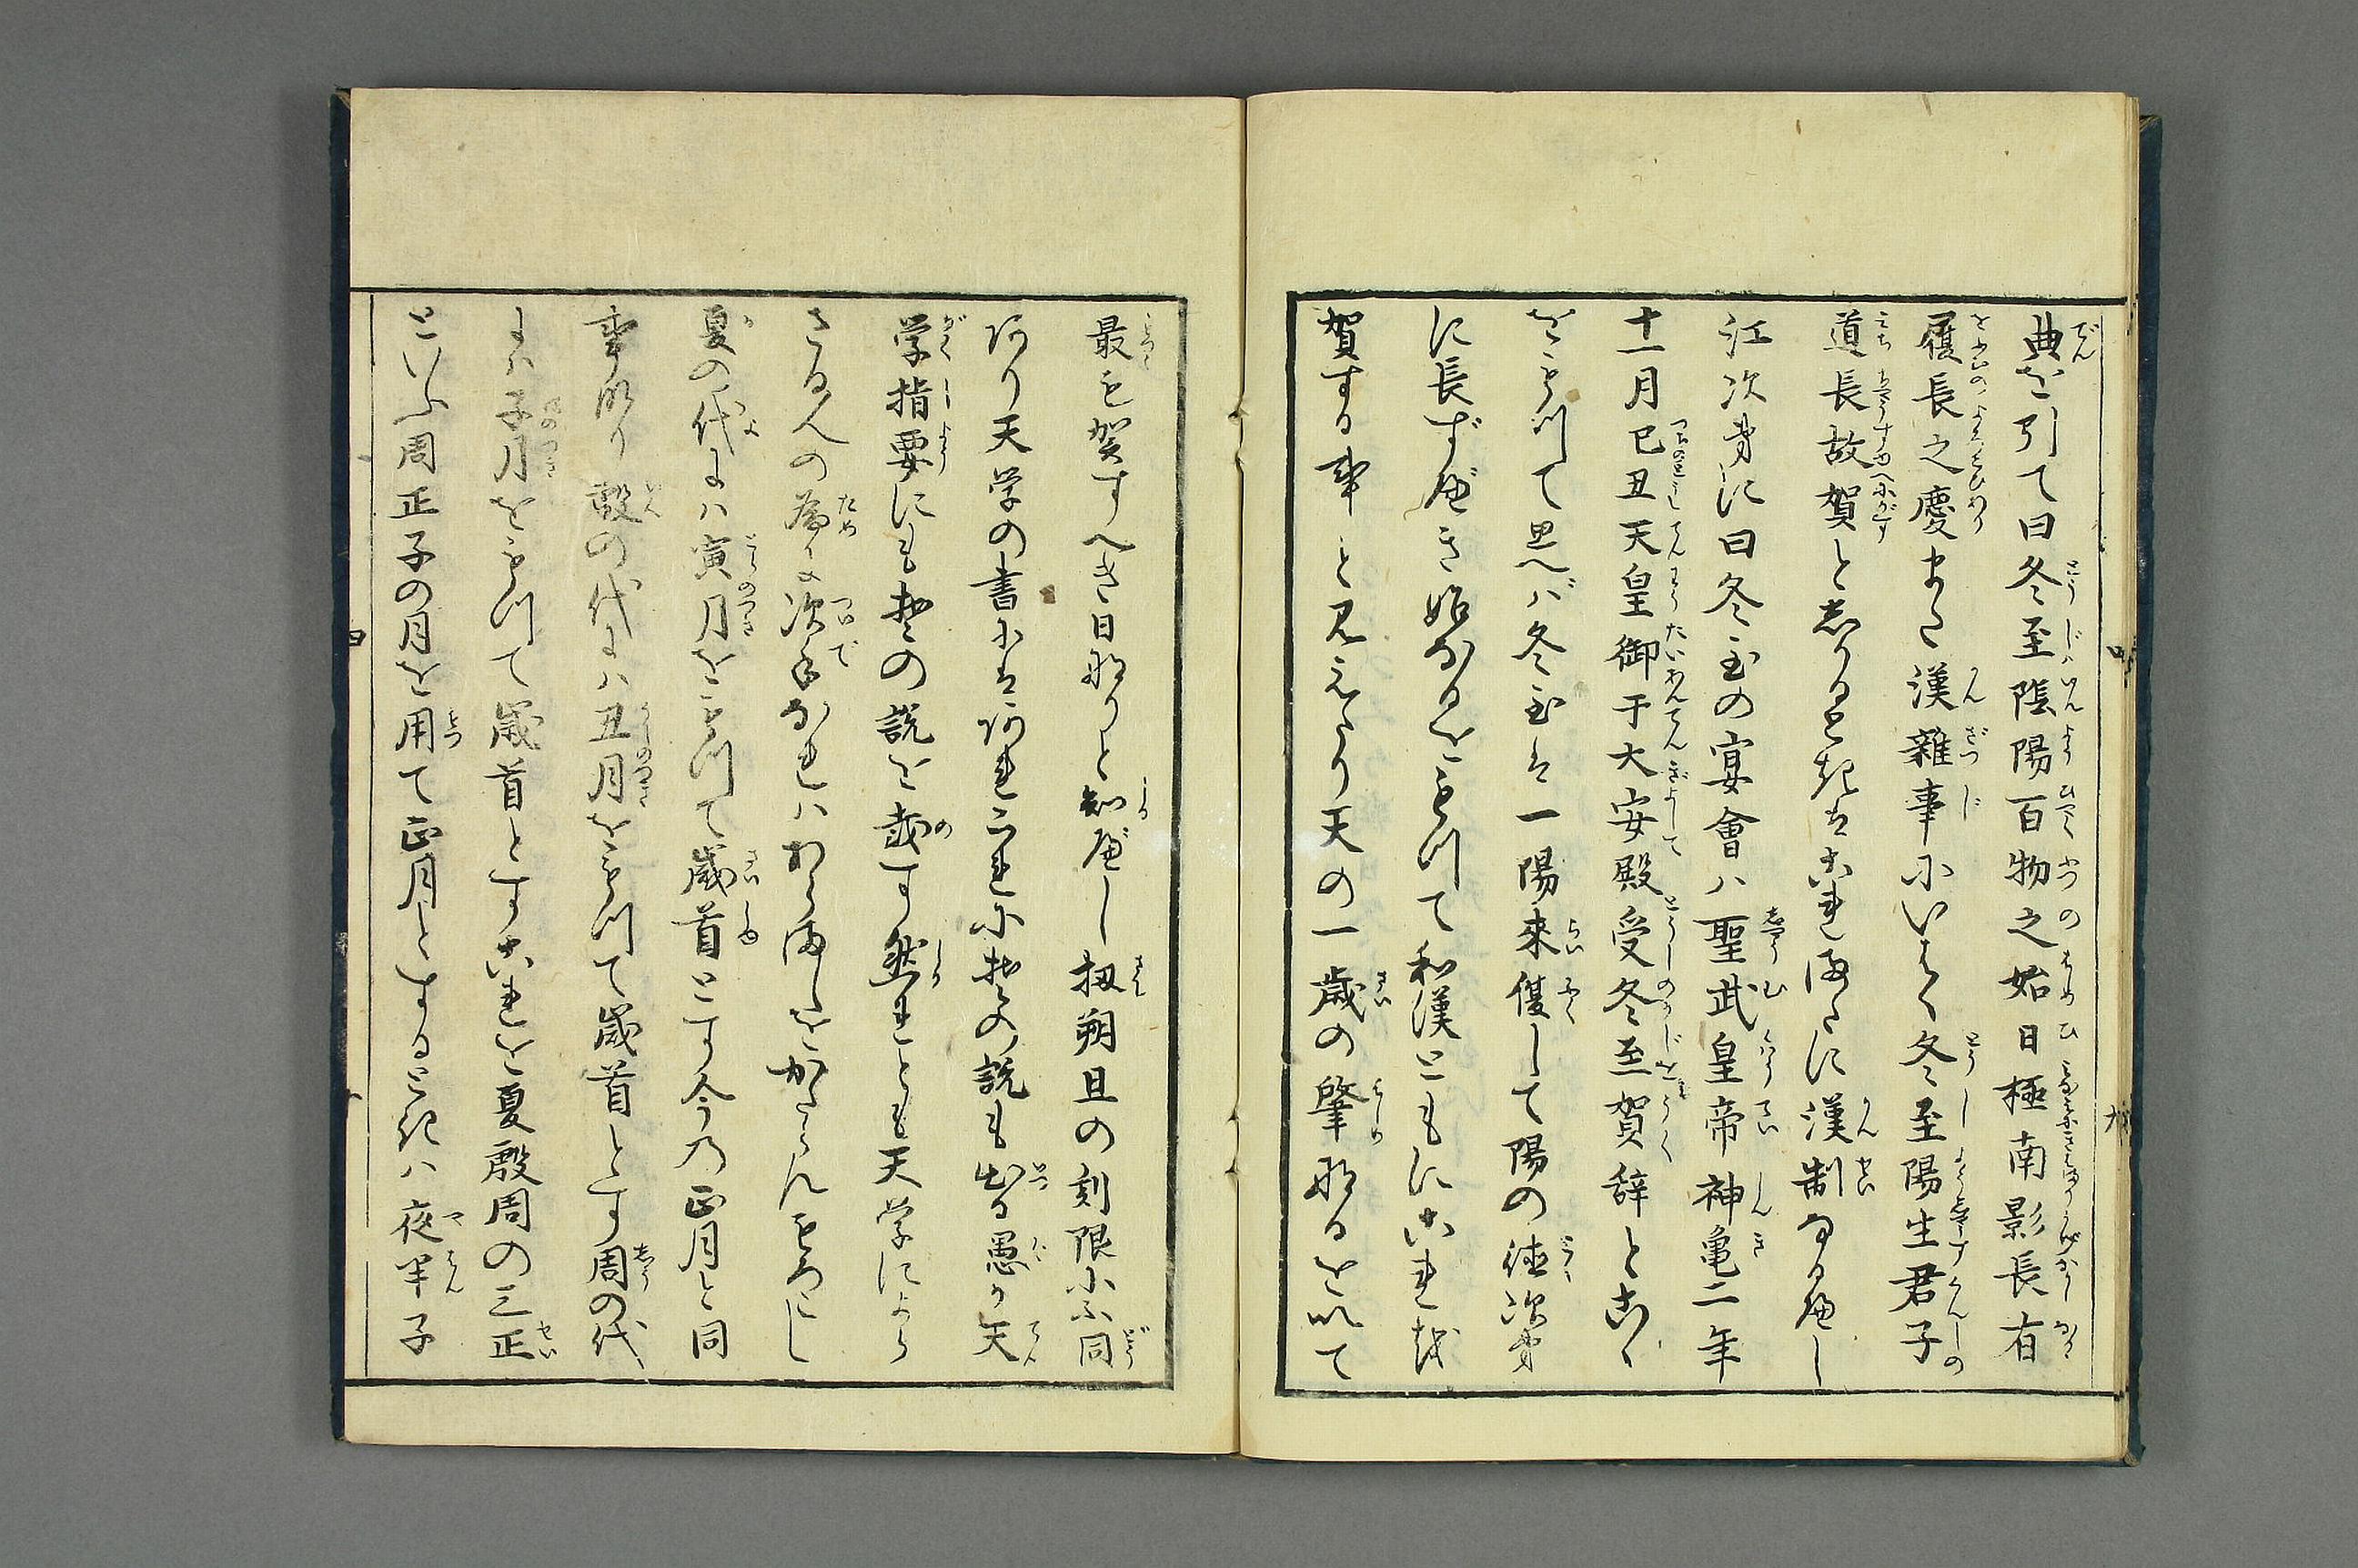 典を引て曰冬至陰陽百物之始日極南影長有
履長之慶また漢雜事にいはく冬至陽生君子
道長故賀としるせるときはこれまたに漢制なるべし
江次第に曰冬至の宴會ハ聖武皇帝神亀二年
十一月己丑天皇御于大安殿受冬至賀辞とあり
をもつて思へバ冬至は一陽來復して陽の徳次第
に長ずべき始なるをもつて和漢ともにこれを
賀する事と見えたり天の一歳の肇なるを以て
最も賀すへき日なりと知べし扨朔旦の刻限小不同
あり天学の書にはあれこれに其の説も出る愚が天
学指要にも其の説を載す然れとも天学によら
さる人の為に次手なれハあらましをかたらんもろこし
夏の代にハ寅月をもつて歳首とす今の正月と同
事なり殷の代にハ丑月をもつて歳首とす周の代
にハ子月をもつて歳首とすこれを夏殷周の三正
といふ周正子の月を用て正月とするときハ夜半子
四